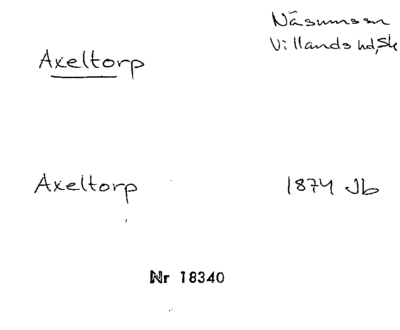 Näsums sn
Villands hd, Sk
Axeltorp
Axeltorp 1874 Jb
Nr 18340